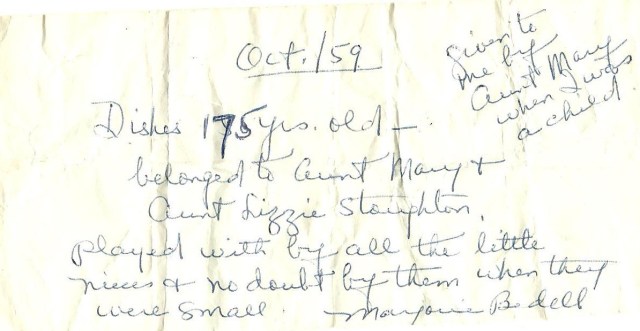 Oct./59
given to
me by
Aunt Mary
when I was
a child.
Dishes 175 yrs. old —
belonged to Aunt Mary +
Aunt Lizzie Stoughton,
played with by all the little
nieces + no doubt by them when they
were small. Marjorie Bedell